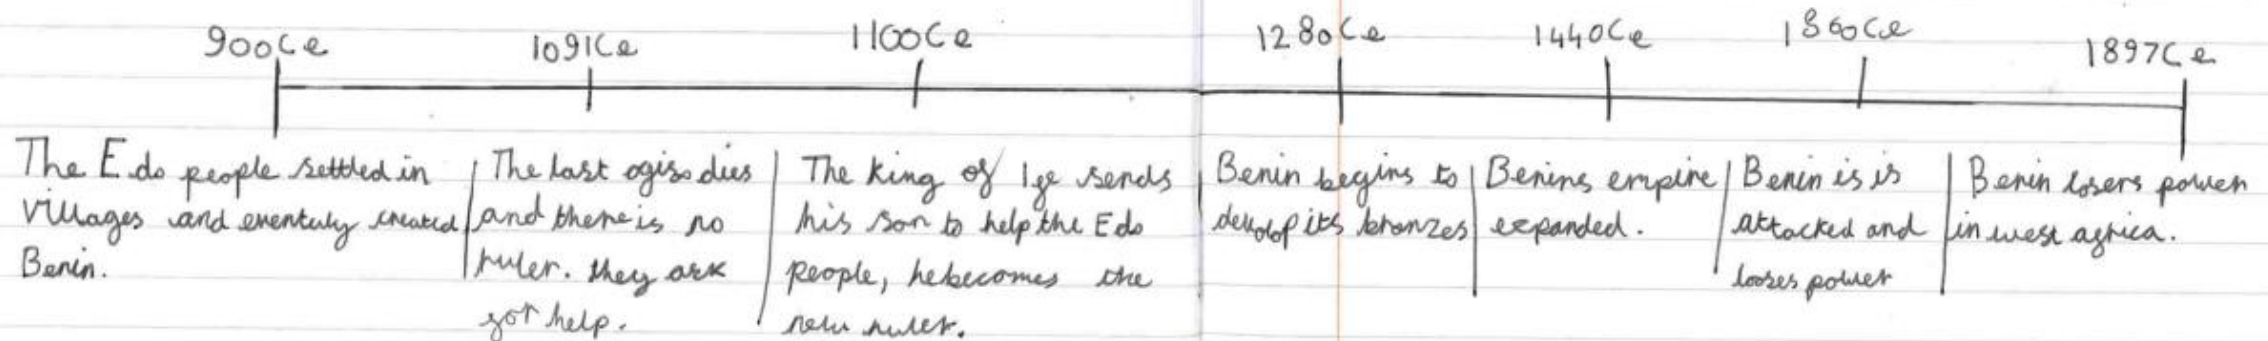 900Ce
1091Ce
1100Ce
1280Ce
1440Ce
1860Ce
1897Ce
The Edo people settled in
villages and eventuly created
Benin.
The last ogiso dies
and there is no
ruler. they ask
for help.
The king of Ife sends
his son to help the Edo
people, he becomes the
new ruler.
Benin begins to
devolop its bronzes
Benins empire
expanded.
Benin is is
attacked and
looses power
Benin losers power
in west africa.